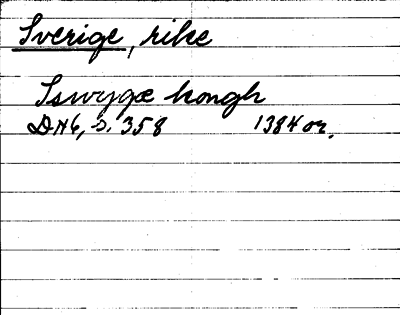 Sverige, rike
Iswygæ kongh
DN6, s. 358 1384 or.